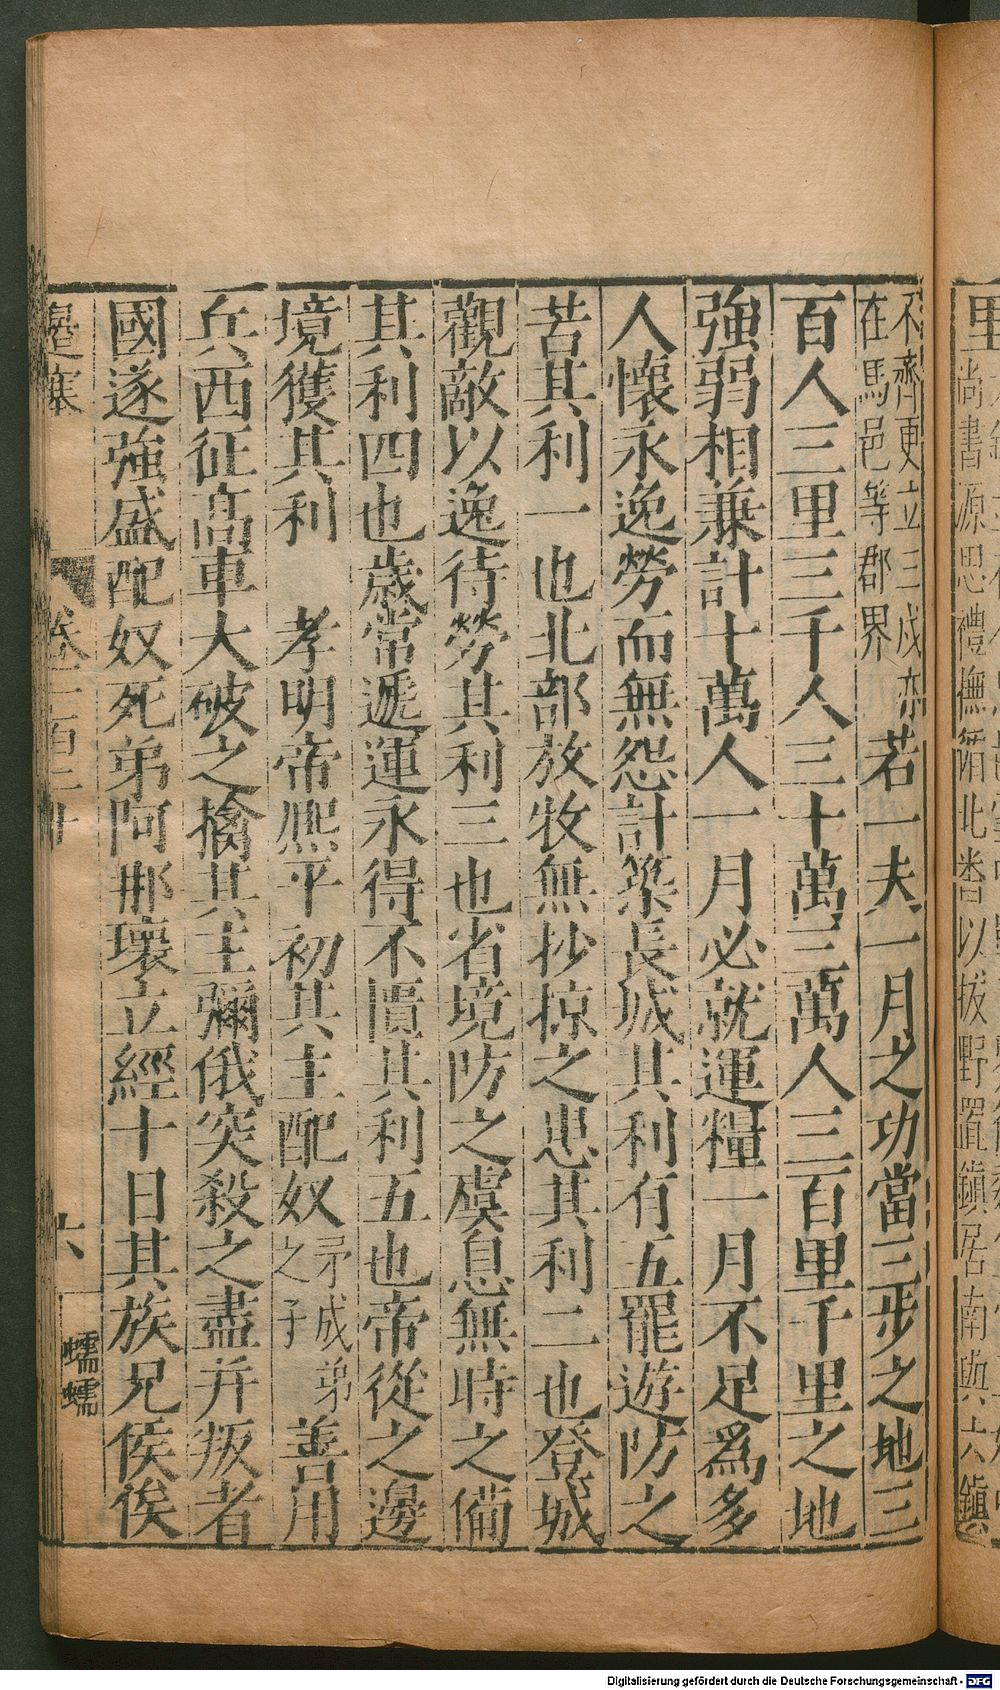 不齊更立三戍亦
在馬邑等郡界
若一夫一月之功當三步之地三
百人三里三千人三十萬三萬人三百里千里之地
強弱相兼計十萬人一月必就運糧一月不足爲多
人懷永逸勞而無怨計築長城其利有五罷遊防之
苦其利一也北部放牧無抄掠之患其利二也登城
觀敵以逸待勞其利三也省境防之虞息無時之備
其利四也歲常遞運永得不匱其利五也帝從之邊
境獲其利 孝明帝熙平初其主配奴
矛成弟
之子
善用
兵西征高車大破之擒其主彌俄突殺之盡并叛者
國遂強盛配奴死弟阿那壞立經十日其族兄俟俟
邊塞
卷二百二十
六
蠕蠕
里
尚書源思禮撫循北番以拔野置鎮居南與六鎮
Digitalisierung gefördert durch die Deutsche Forschungsgemeinschaft - DFG